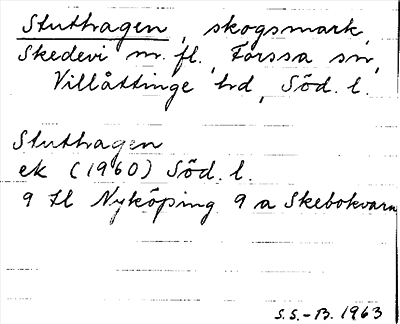 Stuthagen, skogsmark,
Skedevi m. fl., Forssa sn,
Villåttinge hd, Söd. l.
Stuthagen
ek (1960) Söd. l.
9 H Nyköping 9 a Skebokvarn
S.S.-B. 1963